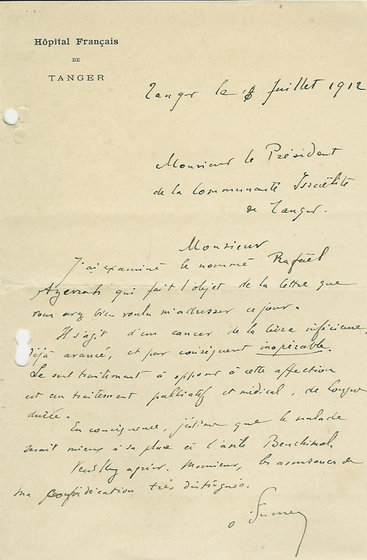 Hôpital Français
DE
TANGER
Tanger le Juillet 1912
Monsieur le Président
de la Communauté Israëlite
de Tanger.
Monsieur
J'ai examiné le nommé Rafaël
qui fait l'objet de la lettre que
vous avez bien voulu m'adresser ce jour.
Il s'agit d'un cancer de la lèvre inférieure,
déjà avancé, et par conséquent inopérable.
Le seul traitement à opposer à cette affection
est un traitement palliatif et médical, de longue
durée.
En conséquence, j'estime que le malade
serait mieux à sa place à l'asile Benchimol.
Veuillez agréer, Monsieur, les assurances de
ma considération très distinguée.